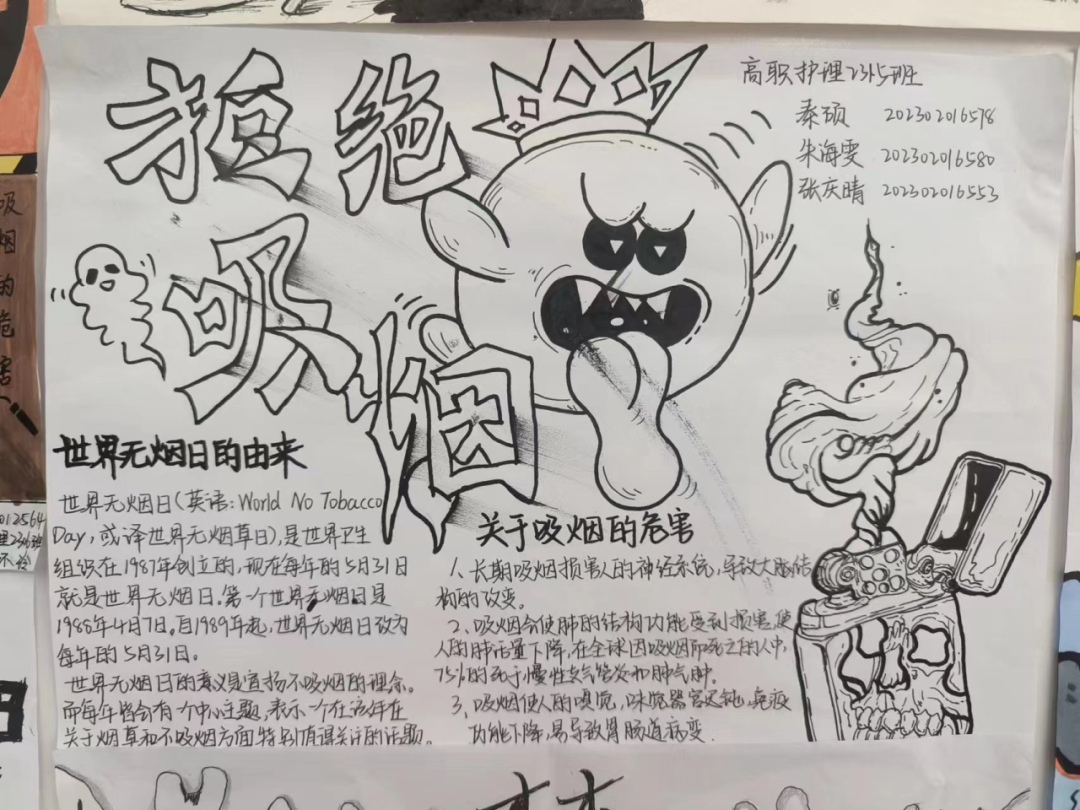 拒绝
吸烟
高职护理2315班
秦硕 202302016578
朱海雯 202302016580
张庆晴 202302016553
世界无烟日的由来
世界无烟日(英语:World No Tobacco
Day,或译世界无烟草日),是世界卫生
组织在1987年创立的,现在每年的5月31日
就是世界无烟日。第一个世界无烟日是
1988年4月7日。自1989年起,世界无烟日改为
每年的5月31日。
世界无烟日的意义是宣扬不吸烟的理念。
而每年皆会有一个中心主题,表示一个在该年在
关于烟草和不吸烟方面特别值得关注的话题。
关于吸烟的危害
1、长期吸烟损害人的神经系统,导致大脑结
构的改变。
2、吸烟会使肺的结构功能受到损害,使
人的肺活量下降,在全球因吸烟而死亡的人中,
75%的死于慢性支气管炎和肺气肿。
3、吸烟使人的嗅觉,味觉器官迟钝,免疫
功能下降,易导致胃肠道病变.
吸
烟
的
危
害
012564